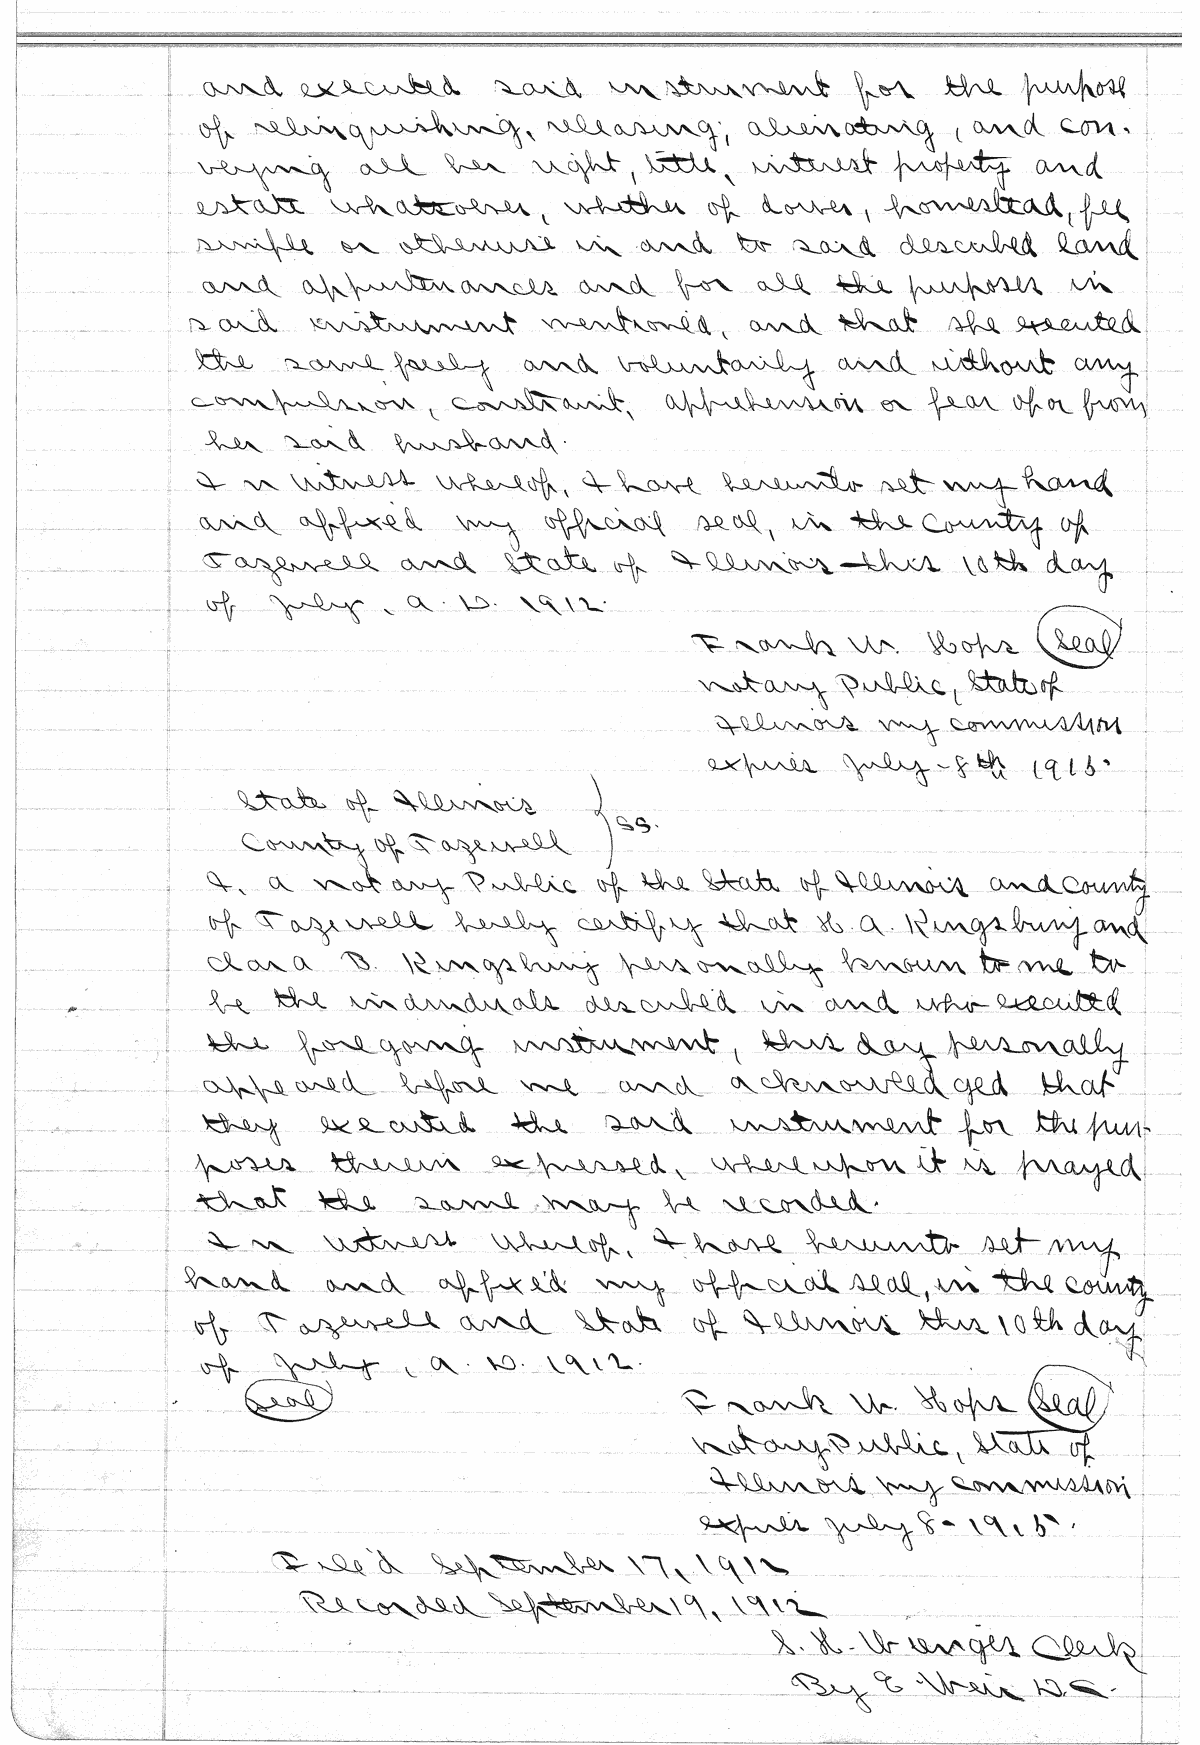 and executed said instrument for the purpose
of relinquishing, releasing, alienating, and con-
veying all her right, title, interest property and
estate whatsoever, whether of dower, homestead, fee
simple or otherwise in and to said described land
and appurtenances and for all the purposes in
said instrument mentioned, and that she executed
the same freely and voluntarily and without any
compulsion, constraint, apprehension or fear of or from
her said husband.
In witness whereof, I have hereunto set my hand
and affixed my official seal, in the County of
Tazewell and State of Illinois this 10th day
of July, A. D. 1912.
Frank W. Hops Seal
Notary Public, State of
Illinois my commission
expires July - 8th 1915.
State of Illinois
County of Tazewell } ss.
I, a Notary Public of the State of Illinois and County
of Tazewell hereby certify that H. A. Kingsbury and
Clara B. Kingsbury personally known to me to
be the individuals described in and who executed
the foregoing instrument, this day personally
appeared before me and acknowledged that
they executed the said instrument for the pur-
poses therein expressed, whereupon it is prayed
that the same may be recorded.
In witness whereof, I have hereunto set my
hand and affixed my official seal, in the county
of Tazewell and State of Illinois this 10th day
of July, A. D. 1912.
Seal Frank W. Hops Seal
Notary Public, State of
Illinois my commission
expires July 8 - 1915.
Filed September 17, 1912
Recorded September 19, 1912
S. H. Clerk
By E. Weir D.C.